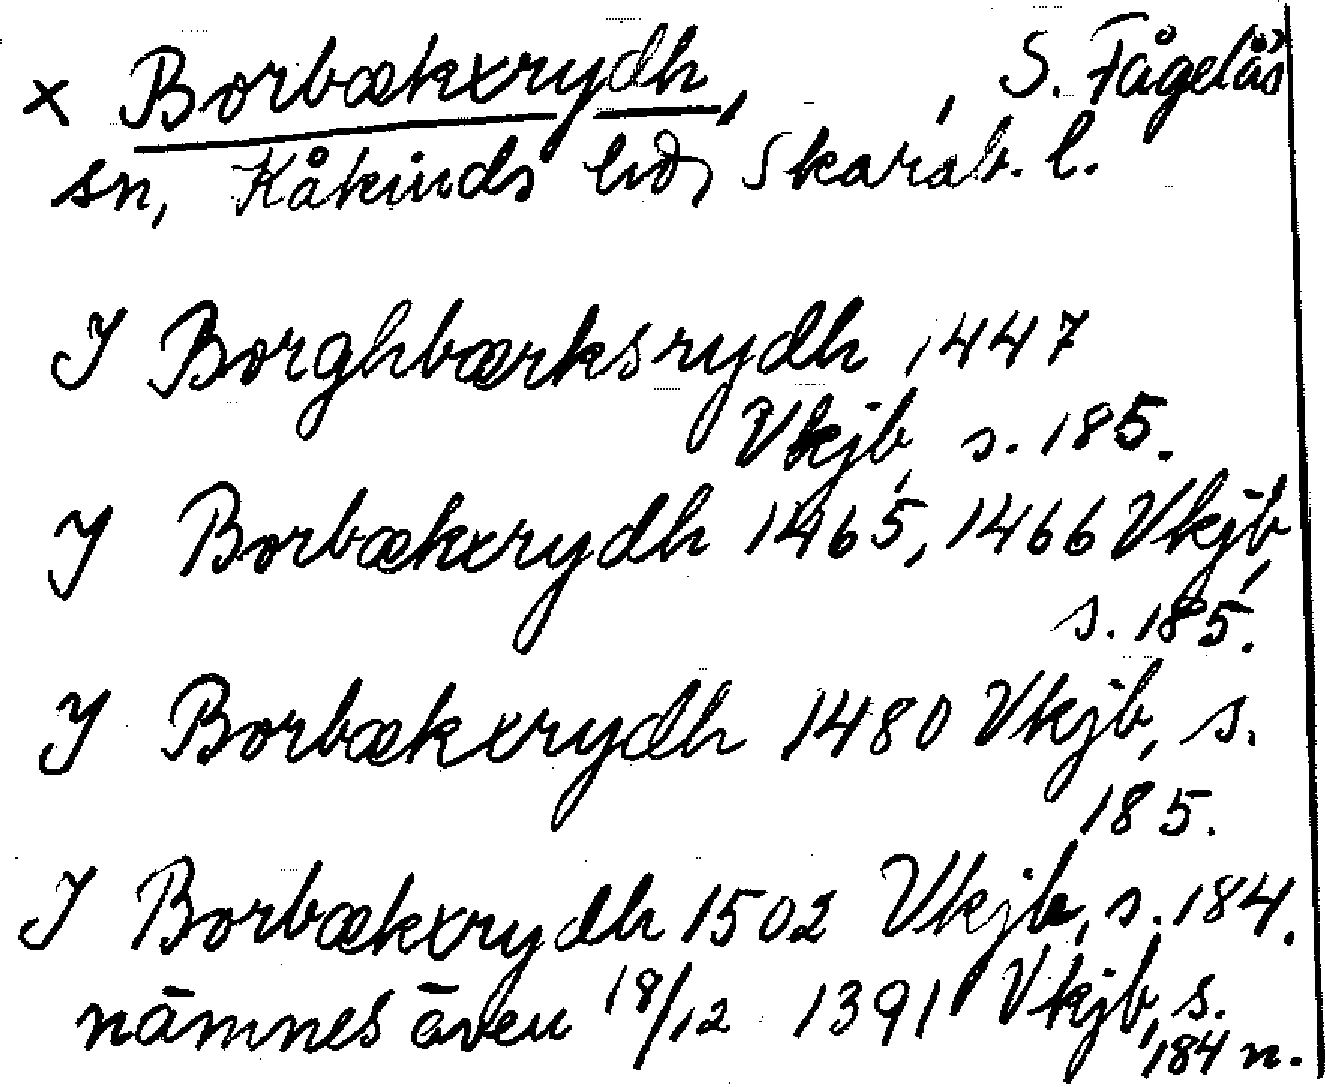 x Borbækxrydh, , S. Fågelås
sn, Kåkinds hd, Skarab. l.
I Borghbærksrydh 1447
Vkjb, s. 185.
I Borbækxrydh 1465, 1466 Vkjb,
s. 185.
I Borbækxrydh 1480 Vkjb, s.
185.
I Borbækxrydh 1502 Vkjb, s. 184.
nämnes även 18/12 1391 Vkjb, s.
184 n.